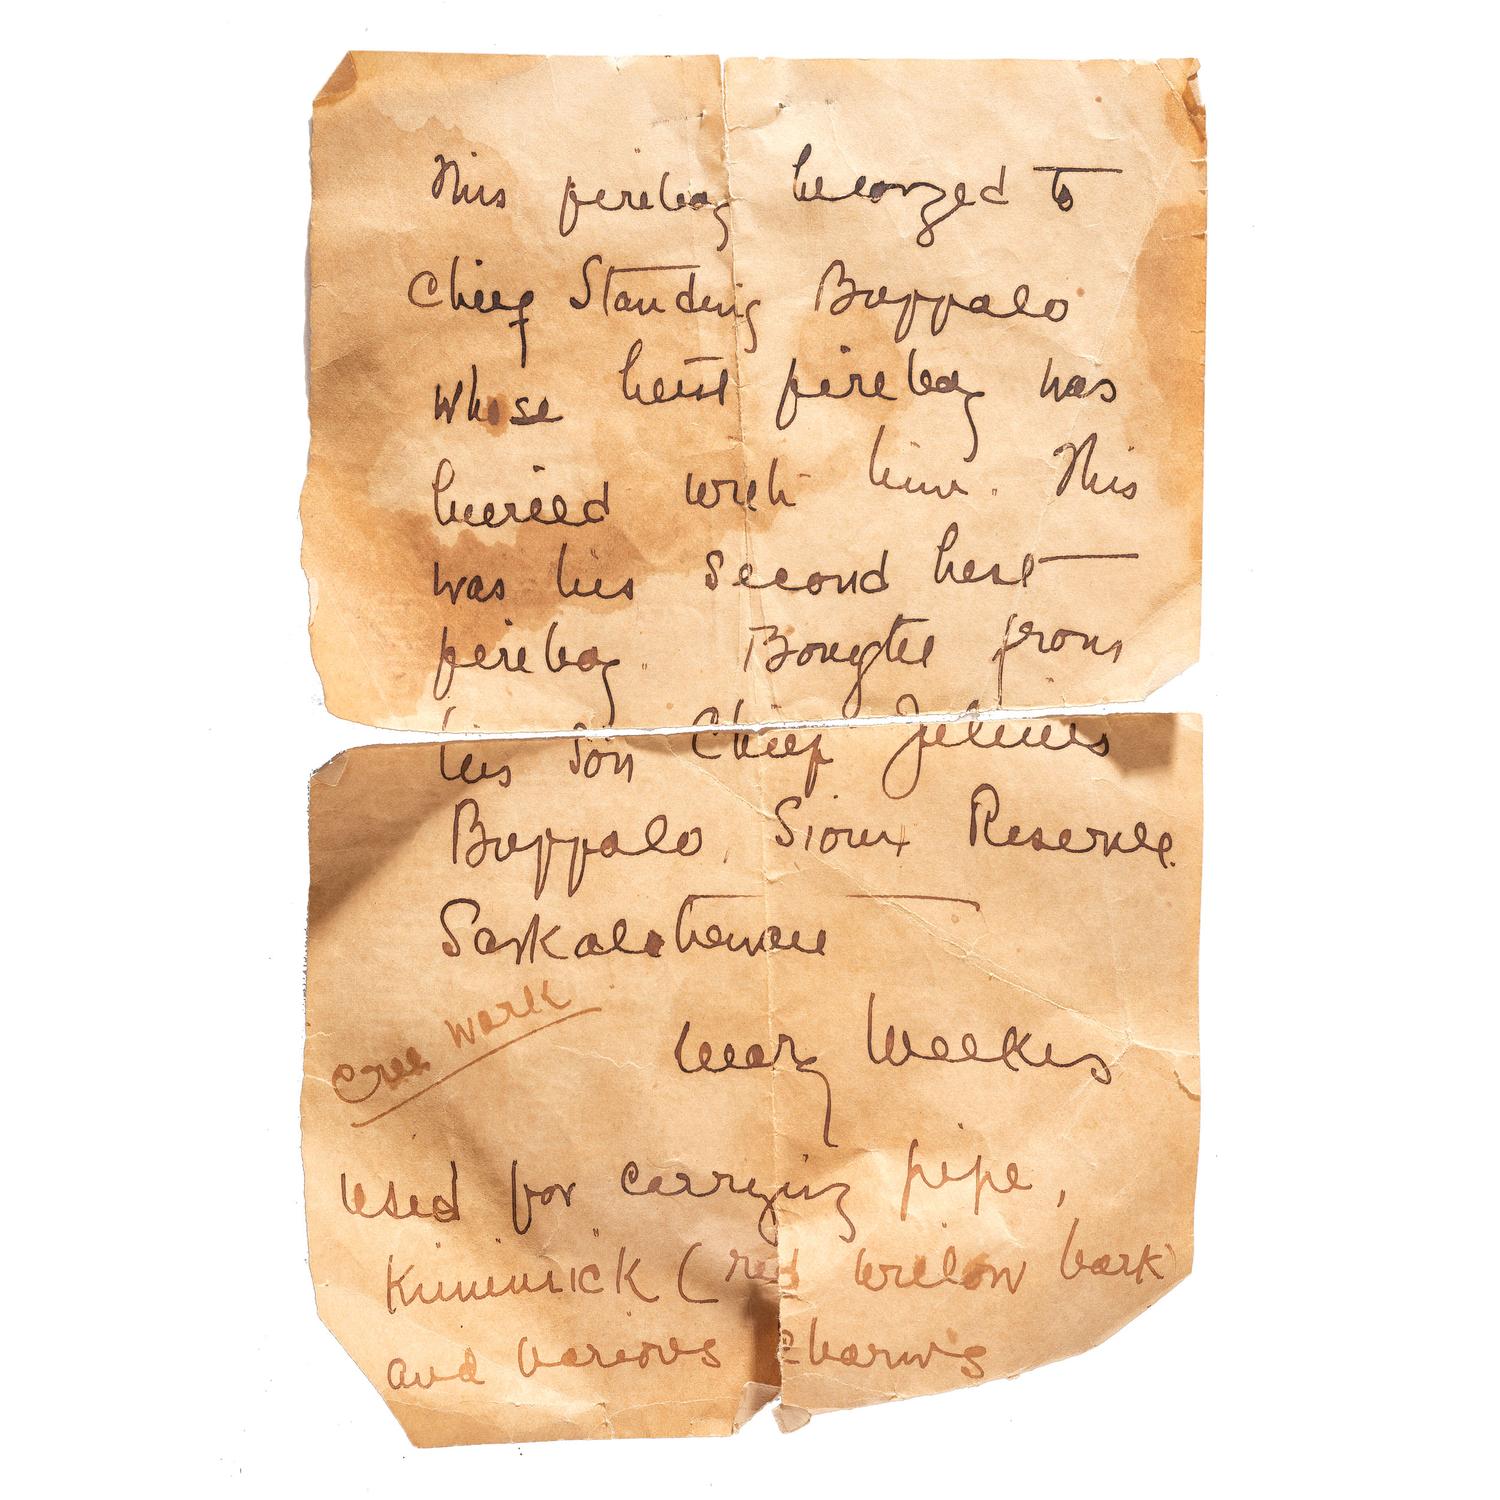 This firebag belonged to
Chief Standing Buffalo
whose best firebag was
buried with him. This
was his second best
firebag. Bought from
his son Chief Julius
Buffalo, Sioux Reserve.
Saskatchewan
Cree work
Mary Weekes
Used for carrying pipe,
Kininick (red willow bark)
and various charms